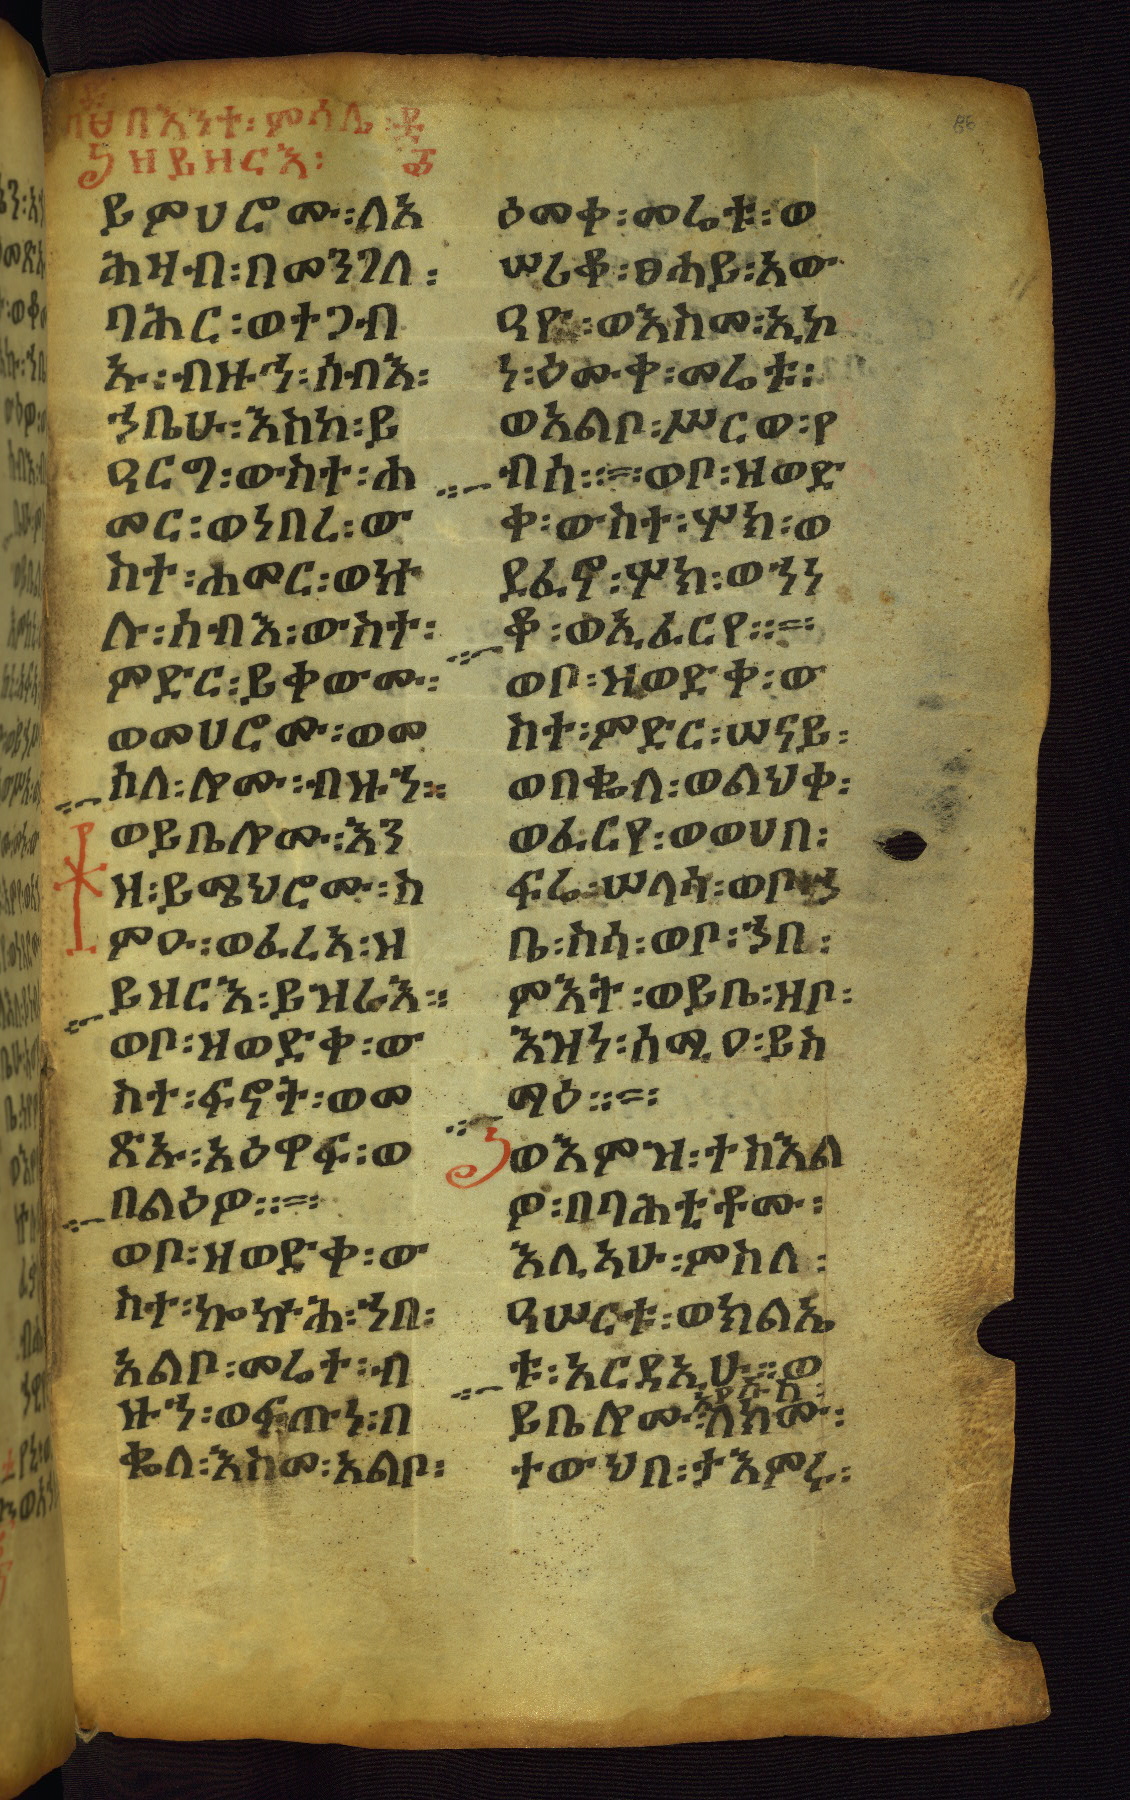 በእንተ፡ ምሳሌ፡
ዘይዘርእ፡
ይምህሮሙ፡ለአ
ሕዛብ፡በመንገለ፡
ባሕር፡ወተጋብ
ኡ፡ብዙኅ፡ሰብእ፡
ኅቤሁ፡እስከ፡ይ
ዓርግ፡ውስተ፡ሐ
መር፡ወነበረ፡ው
ስተ፡ሐመር፡ወኵ
ሉ፡ሰብእ፡ውስተ፡
ምድር፡ይቀውሙ፡
ወመሀሮሙ፡ወመ
ሰለ፡ሎሙ፡ብዙኅ፡፡
ወይቤሎሙ፡እን
ዘ፡ይሜህሮሙ፡ስ
ምዑ፡ወፈረአ፡ዘ
ይዘርእ፡ይዝራእ፡፡
ወቦ፡ዘወድቀ፡ው
ስተ፡ፍኖት፡ወመ
ጽኡ፡አዕዋፍ፡ወ
በልዕዎ፡፡=፡
ወቦ፡ዘወድቀ፡ው
ስተ፡ኰኵሕ፡ኀበ፡
አልቦ፡መሬተ፡ብ
ዙኅ፡ወፍጡነ፡በ
ቈለ፡እስመ፡አልቦ፡
ዕመቀ፡መሬቱ፡ወ
ሠሪቆ፡ፀሐይ፡አው
ዓየ፡ወእስመ፡ኢኮ
ነ፡ዕሙቀ፡መሬቱ፡
ወአልቦ፡ሥርወ፡የ
ብሰ፡፡=፡ወቦ፡ዘወድ
ቀ፡ውስተ፡ሦክ፡ወ
ደፈኖ፡ሦክ፡ወኀነ
ቆ፡ወኢፈርየ፡፡=፡
ወቦ፡ዘወድቀ፡ው
ስተ፡ምድር፡ሠናይ፡
ወበቈለ፡ወልህቀ፡
ወፈርየ፡ወወሀበ፡
ፍሬ፡ሠላሳ፡ወቦኀ
ቤ፡ስሳ፡ወቦ፡ኀበ፡
ምእት፡ወይቤ፡ዘቦ፡
እዝነ፡ሰሚዐ፡ይስ
ማዕ፡፡=፡
ወእምዝ፡ተስእል
ዎ፡በባሕቲቶሙ፡
እሊአሁ፡ምስለ፡
ዓሠርቱ፡ወክልኤ
ቱ፡አርዳኢሁ፡፡ወ
ይቤሎሙ፡ለክሙ፡
ተውህበ፡ታእምሩ፡